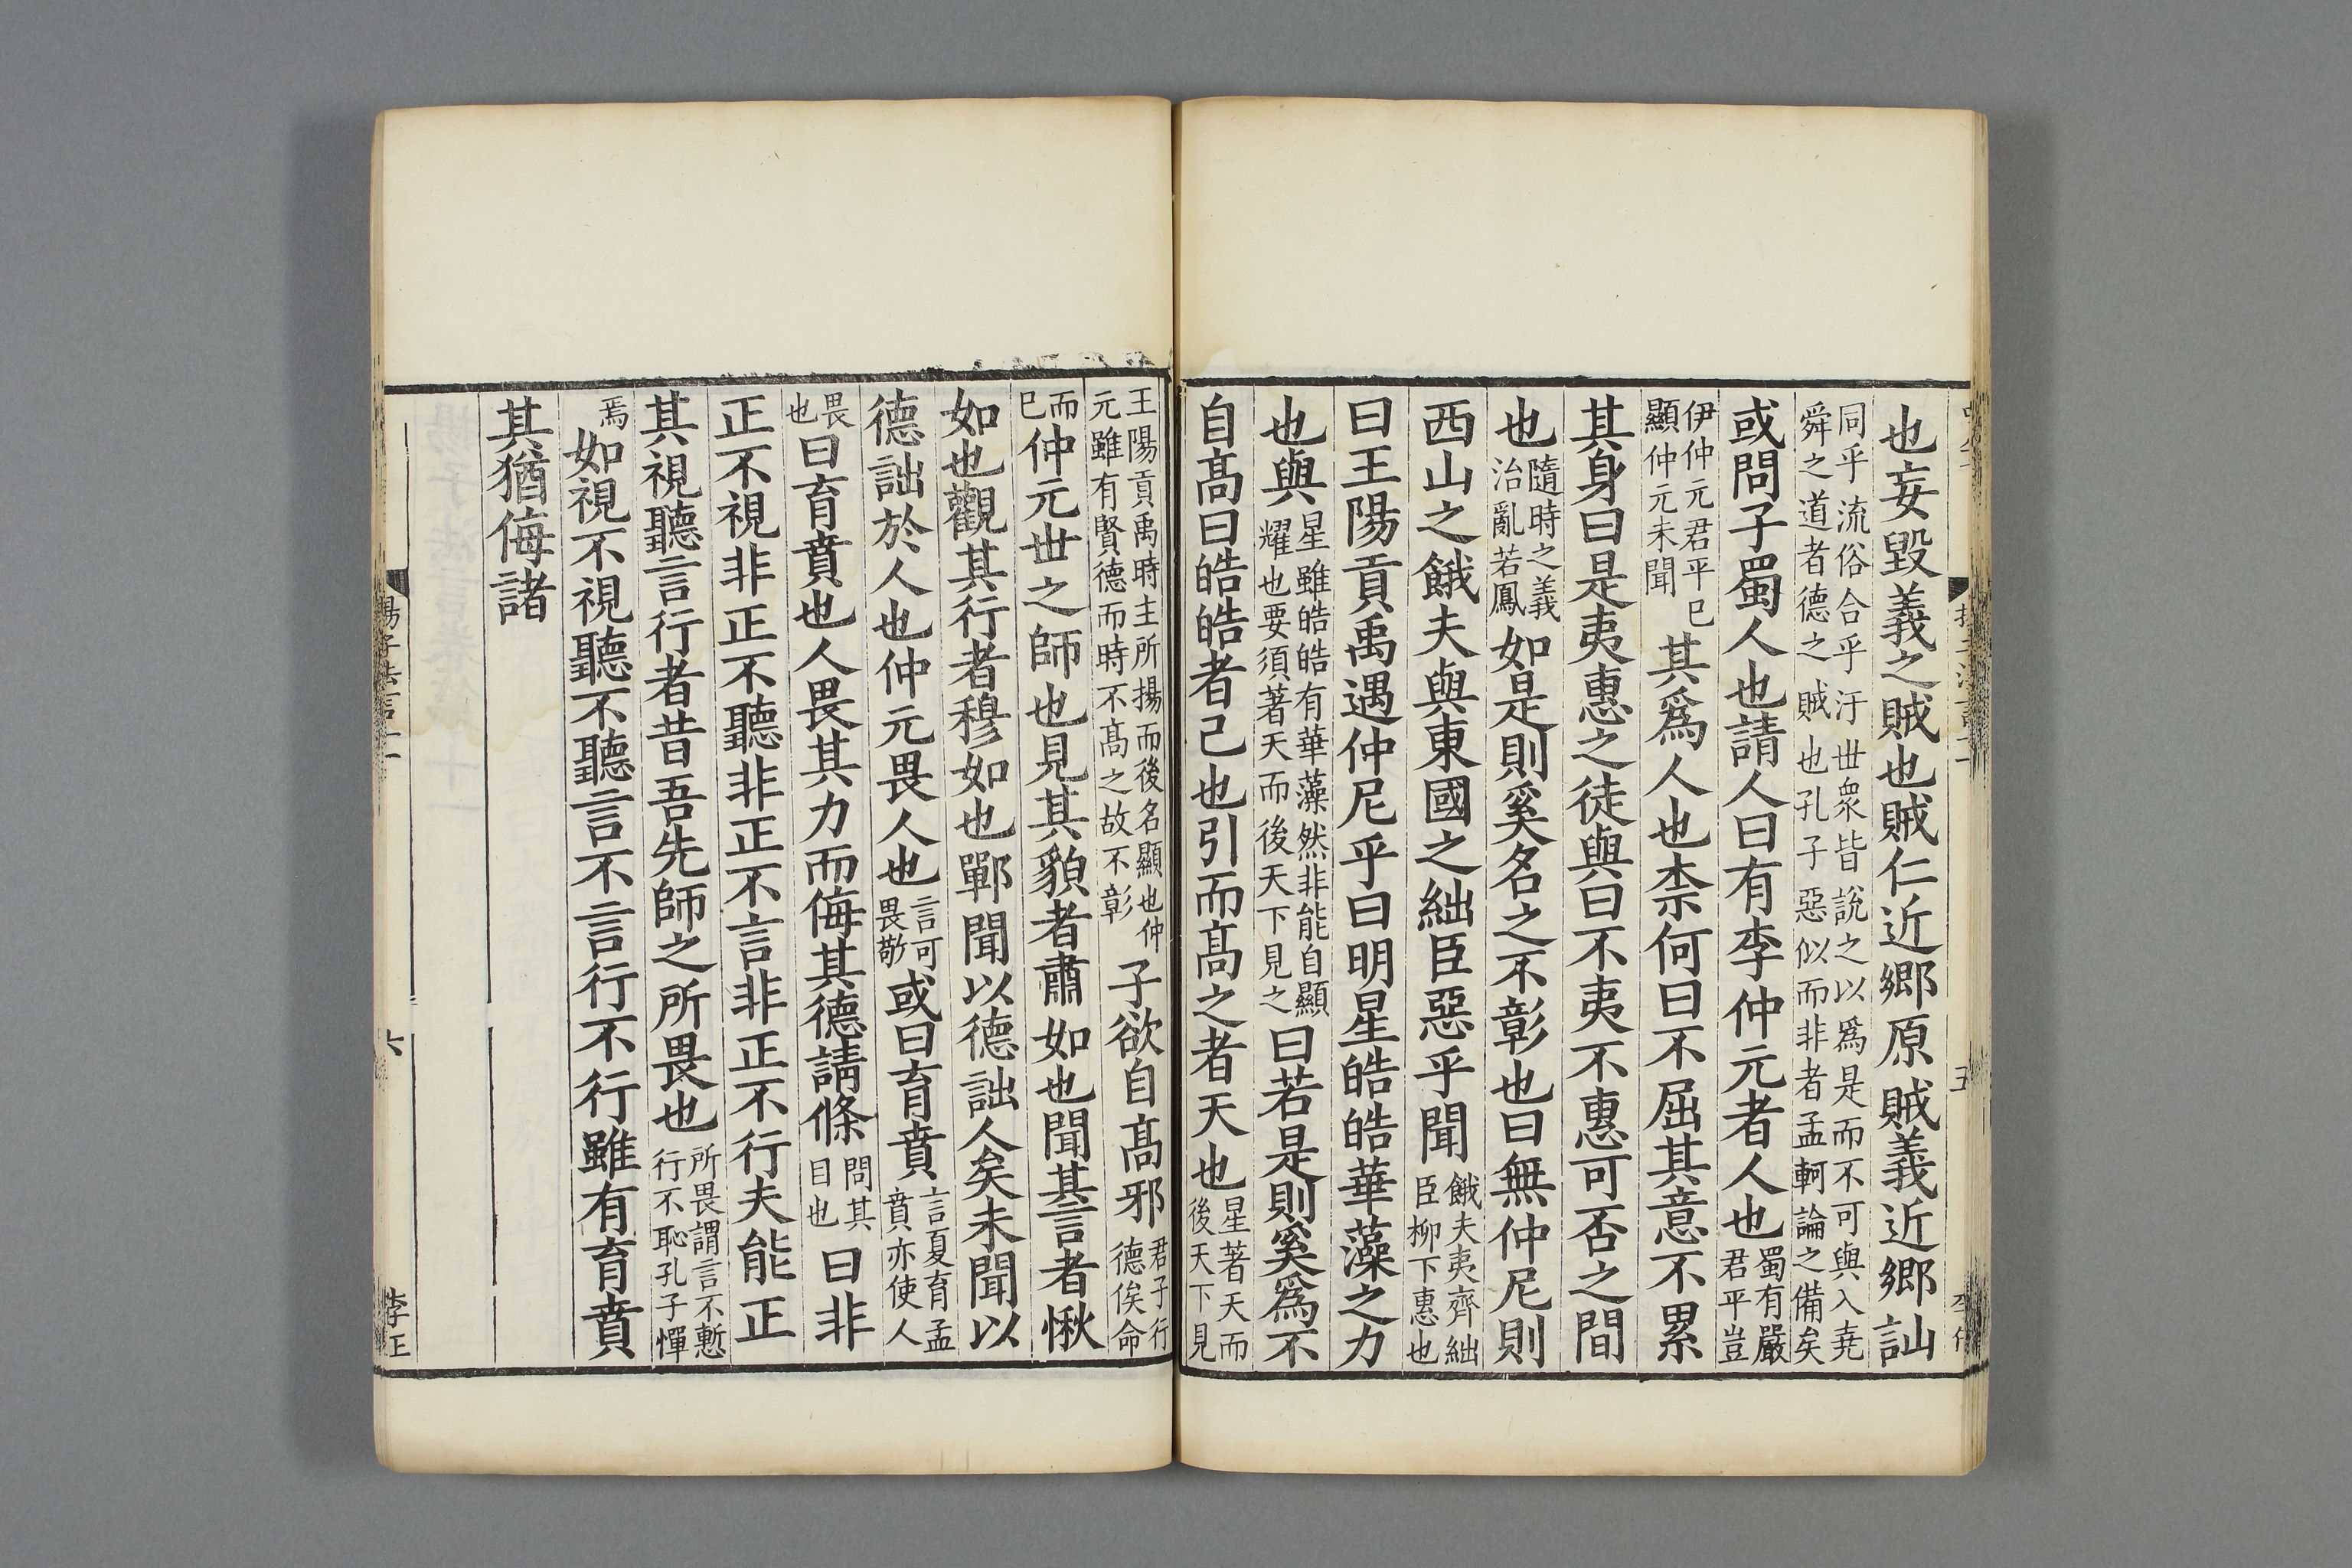 也妄毀義之賊也賊仁近鄉原賊義近鄉訕
同乎流俗合乎汙丗衆皆說之以爲是而不可與入堯
舜之道者德之賊也孔子惡似而非者孟軻論之備矣
或問子蜀人也請人曰有李仲元者人也蜀有嚴
君平豈
伊仲元君平已
顯仲元未聞其爲人也柰何曰不屈其意不累
其身曰是夷惠之徒與曰不夷不惠可否之間
也隨時之義
治亂若鳳如是則奚名之不彰也曰無仲尼則
西山之餓夫與東國之絀臣惡乎聞餓夫夷齊絀
臣柳下惠也
曰王陽貢禹遇仲尼乎曰明星皓皓華藻之力
也與星雖皓皓有華藻然非能自顯
耀也要須著天而後天下見之曰若是則奚爲不
自髙曰皓皓者己也引而髙之者天也星著天而
後天下見
王陽貢禹時主所揚而後名顯也仲
元雖有賢德而時不髙之故不彰子欲自髙邪君子行
德俟命
而
已仲元丗之師也見其貌者肅如也聞其言者愀
如也觀其行者穆如也鄲聞以德詘人矣未聞以
德詘於人也仲元畏人也言可
畏敬或曰育賁言夏育孟
賁亦使人
畏
也曰育賁也人畏其力而侮其德請條問其
目也曰非
正不視非正不聽非正不言非正不行夫能正
其視聽言行者昔吾先師之所畏也所畏謂言不慙
行不恥孔子憚
焉如視不視聽不聽言不言行不行雖有育賁
其猶侮諸
揚子法言十一
六
李正
五